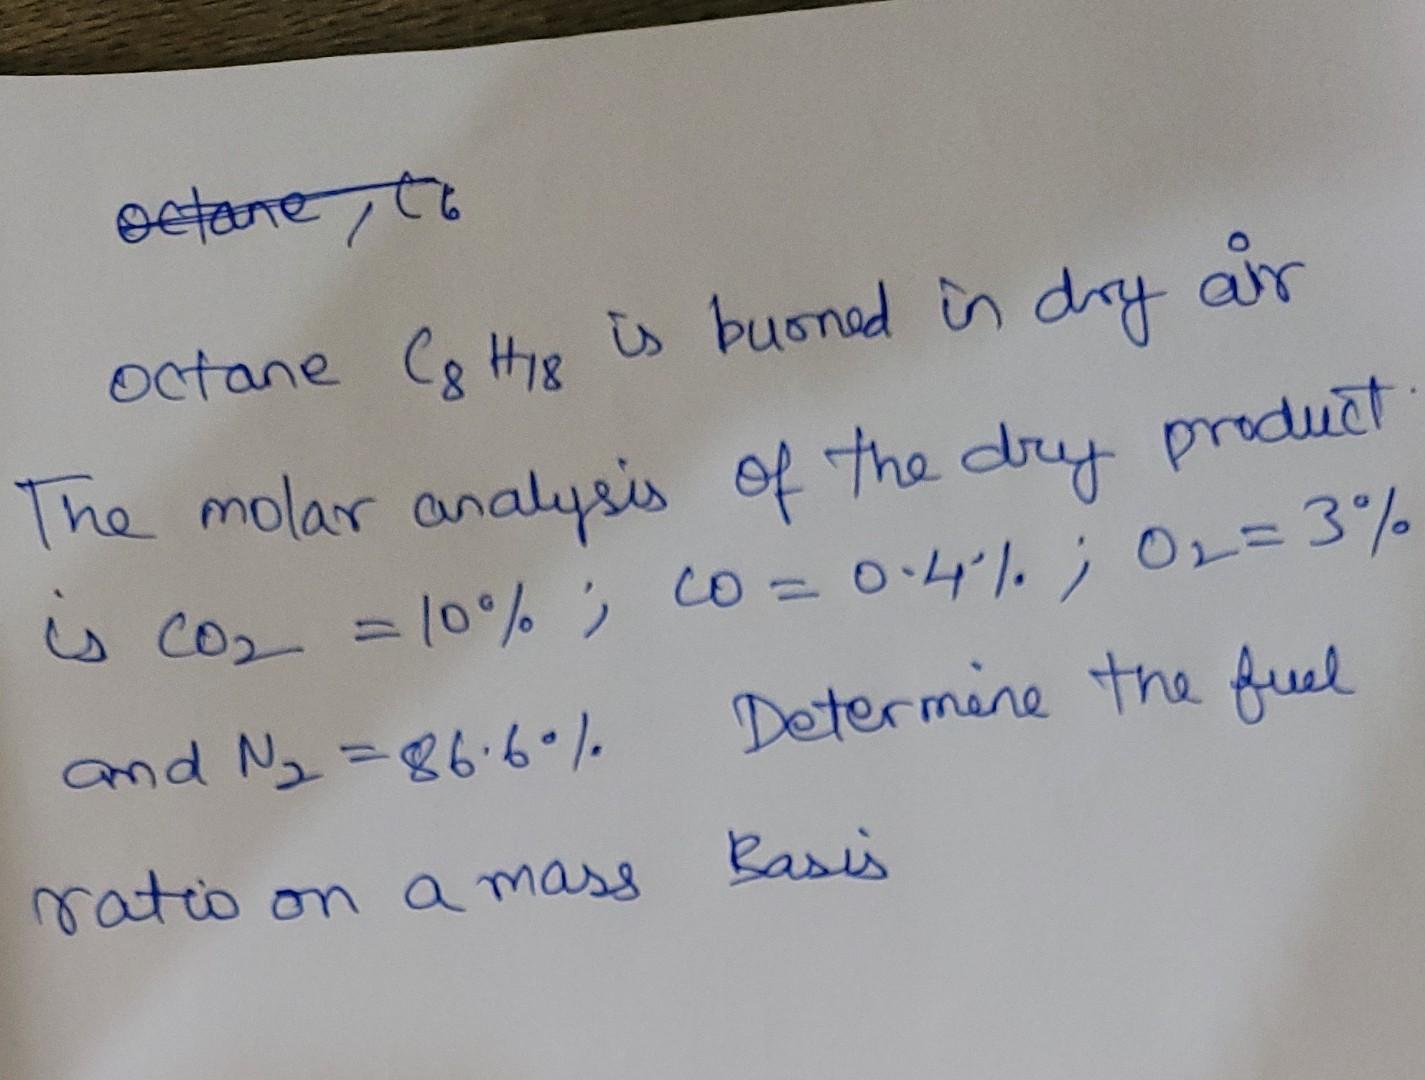 octane, C6
octane C8 H18 is burned in dry air
The molar analysis of the dry product.
is CO2 = 10% ; CO = 0.4% ; O2 = 3%
and N2 = 86.6% Determine the fuel
ratio on a mass Basis